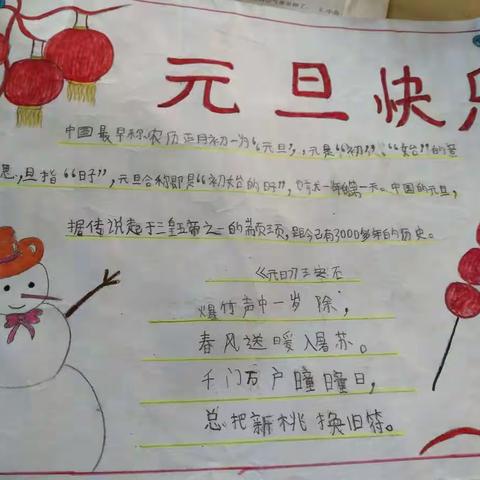 元旦快乐
中国最早称农历正月初一为“元旦”,元是“初”、“始”的意
思,旦指“日子”,元旦合称即是“初始的日子”,也就是一年的第一天。中国的元旦,
据传说起于三皇五帝之一的颛顼,距今已有3000多年的历史。
《元日》王安石
爆竹声中一岁除,
春风送暖入屠苏。
千门万户曈曈日,
总把新桃换旧符。